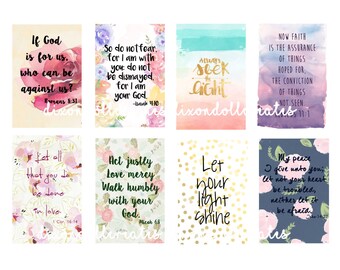 If God
is for us,
who can be
against us?
Romans 8:31
So do not fear,
for I am with
you do not
be dismayed,
for I am
your God.
-Isaiah 41:10
always
seek
the
light
NOW FAITH
IS THE ASSURANCE
OF THINGS
HOPED FOR
THE
CONVICTION
OF THINGS
NOT SEEN
11:1
dixondollcreates
Let all
that you do
be done
in love
Act justly
Love mercy
Walk humbly
with your
God.
Micah 6:8
Let
your
light
shine
My peace
I give unto you
let not your heart
be troubled,
neither let it
be afraid.